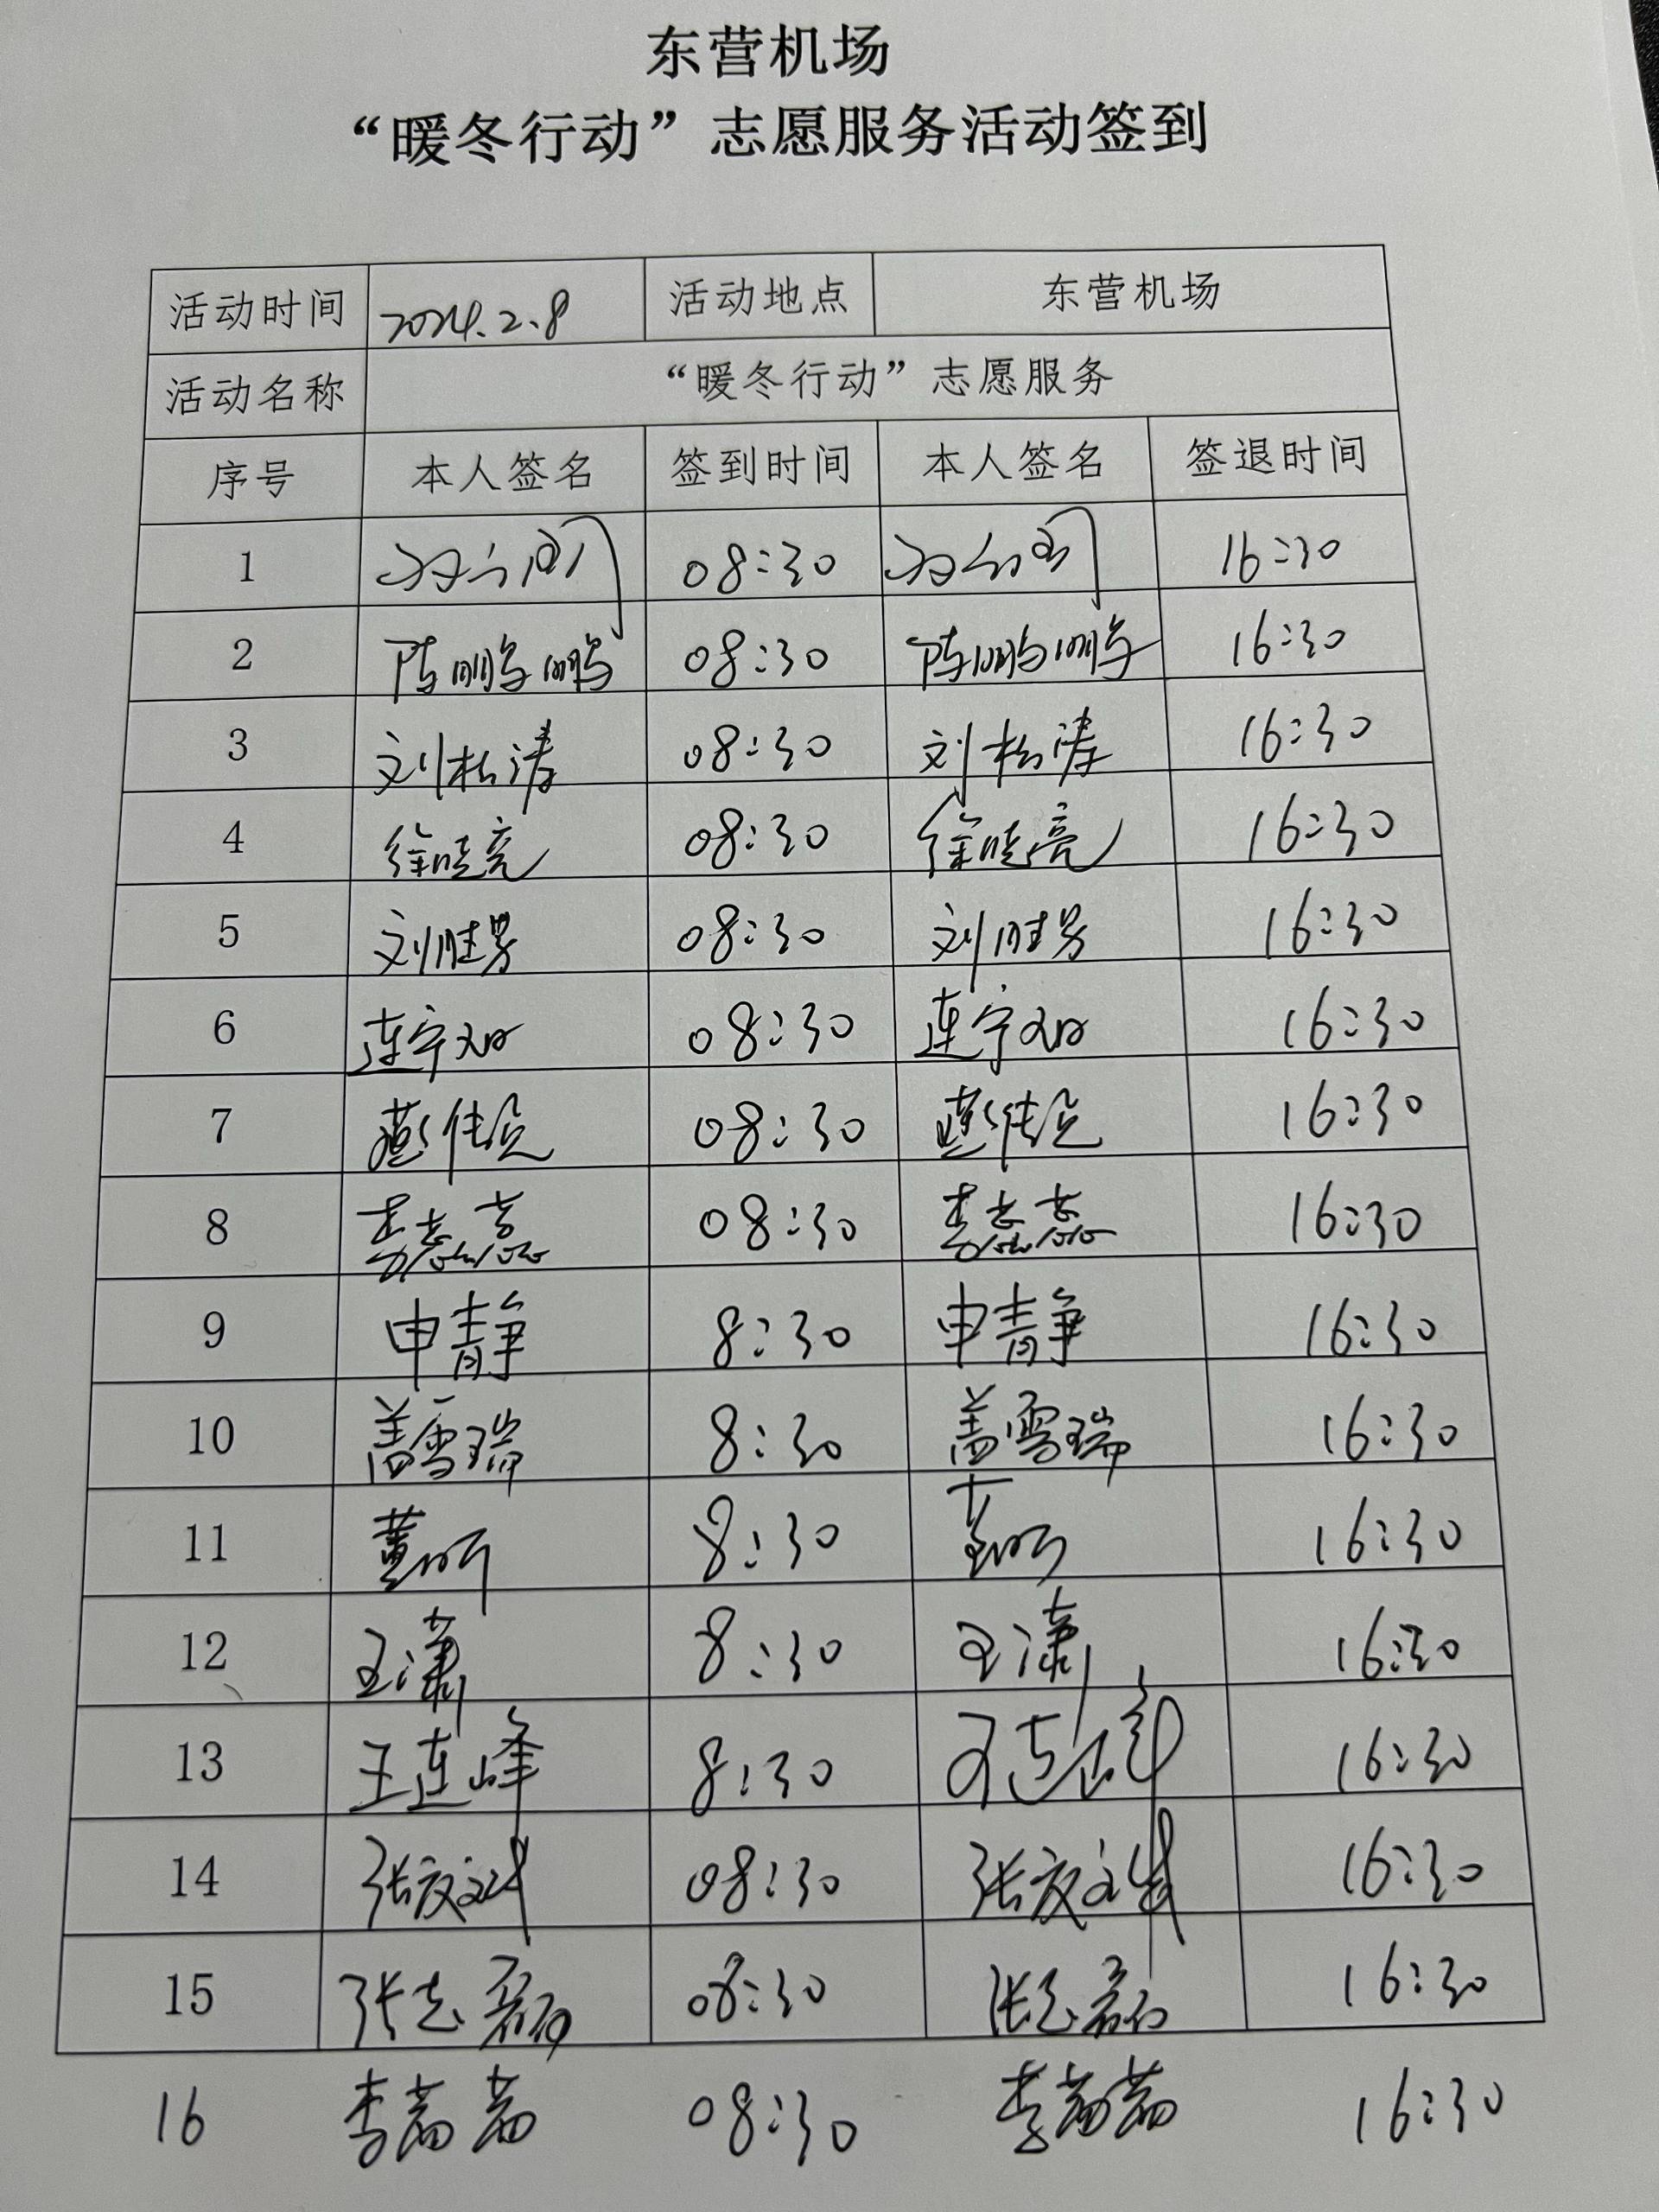 东营机场
“暖冬行动”志愿服务活动签到
活动时间 2024.2.8 活动地点 东营机场
活动名称 “暖冬行动”志愿服务
序号 本人签名 签到时间 本人签名 签退时间
1 08:30 16:30
2 陈鹏鹏 08:30 陈鹏鹏 16:30
3 刘松涛 08:30 刘松涛 16:30
4 徐晓亮 08:30 徐晓亮 16:30
5 刘胜男 08:30 刘胜男 16:30
6 连宇 08:30 连宇 16:30
7 08:30 16:30
8 李蕊蕊 08:30 李蕊蕊 16:30
9 申静 8:30 申静 16:30
10 盖雪瑞 8:30 盖雪瑞 16:30
11 董昕 8:30 董昕 16:30
12 王潇 8:30 王潇 16:30
13 王连峰 8:30 王连峰 16:30
14 张 08:30 张 16:30
15 张志磊 08:30 张志磊 16:30
16 李茜茜 08:30 李茜茜 16:30